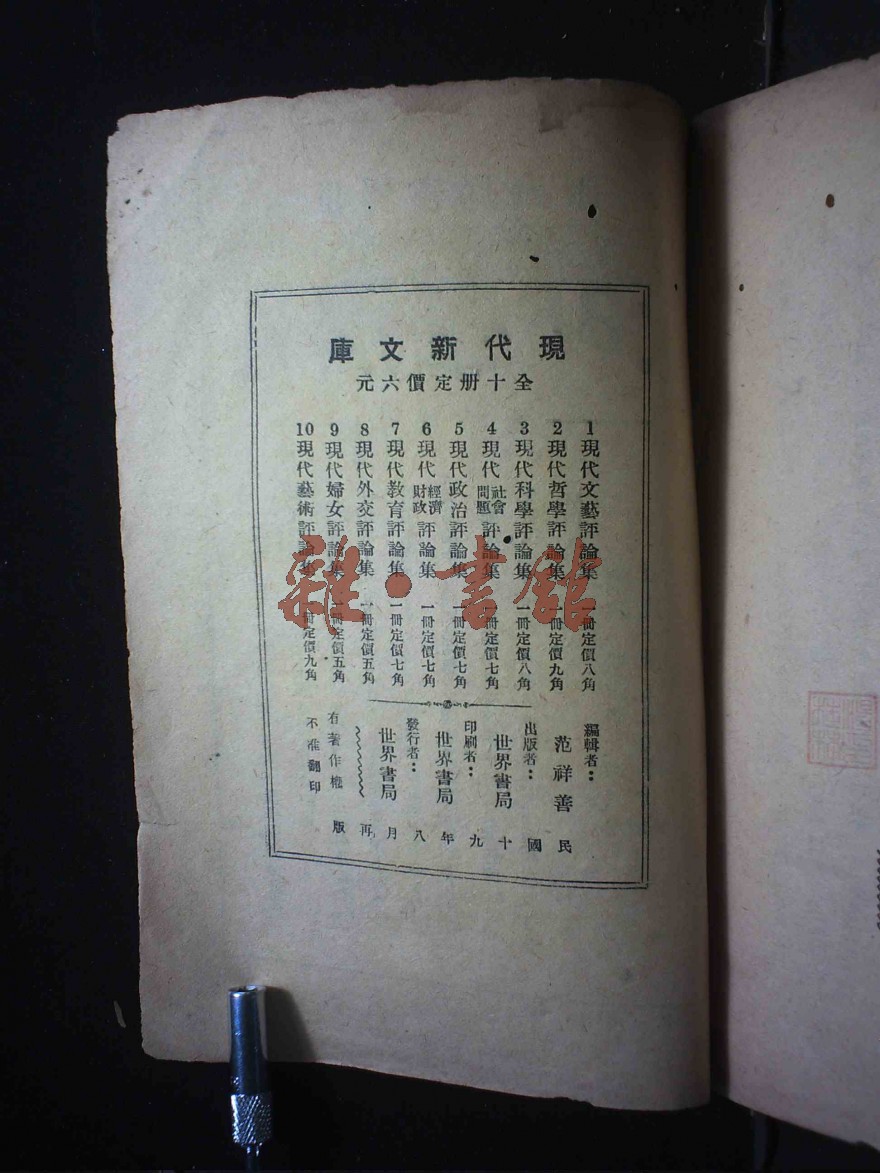 現代新文庫
全十册定價六元
1現代文藝評論集 一冊定價八角
2現代哲學評論集 一冊定價九角
3現代科學評論集 一冊定價八角
4現代社會問題評論集 一冊定價七角
5現代政治評論集 一冊定價七角
6現代經濟財政評論集 一冊定價七角
7現代教育評論集 一冊定價七角
8現代外交評論集 一冊定價五角
9現代婦女評論集 一冊定價五角
10現代藝術評論集 一冊定價九角
編輯者：范祥善
出版者：世界書局
印刷者：世界書局
發行者：世界書局
有著作權
不准翻印
民國十九年八月再版
雜·書館